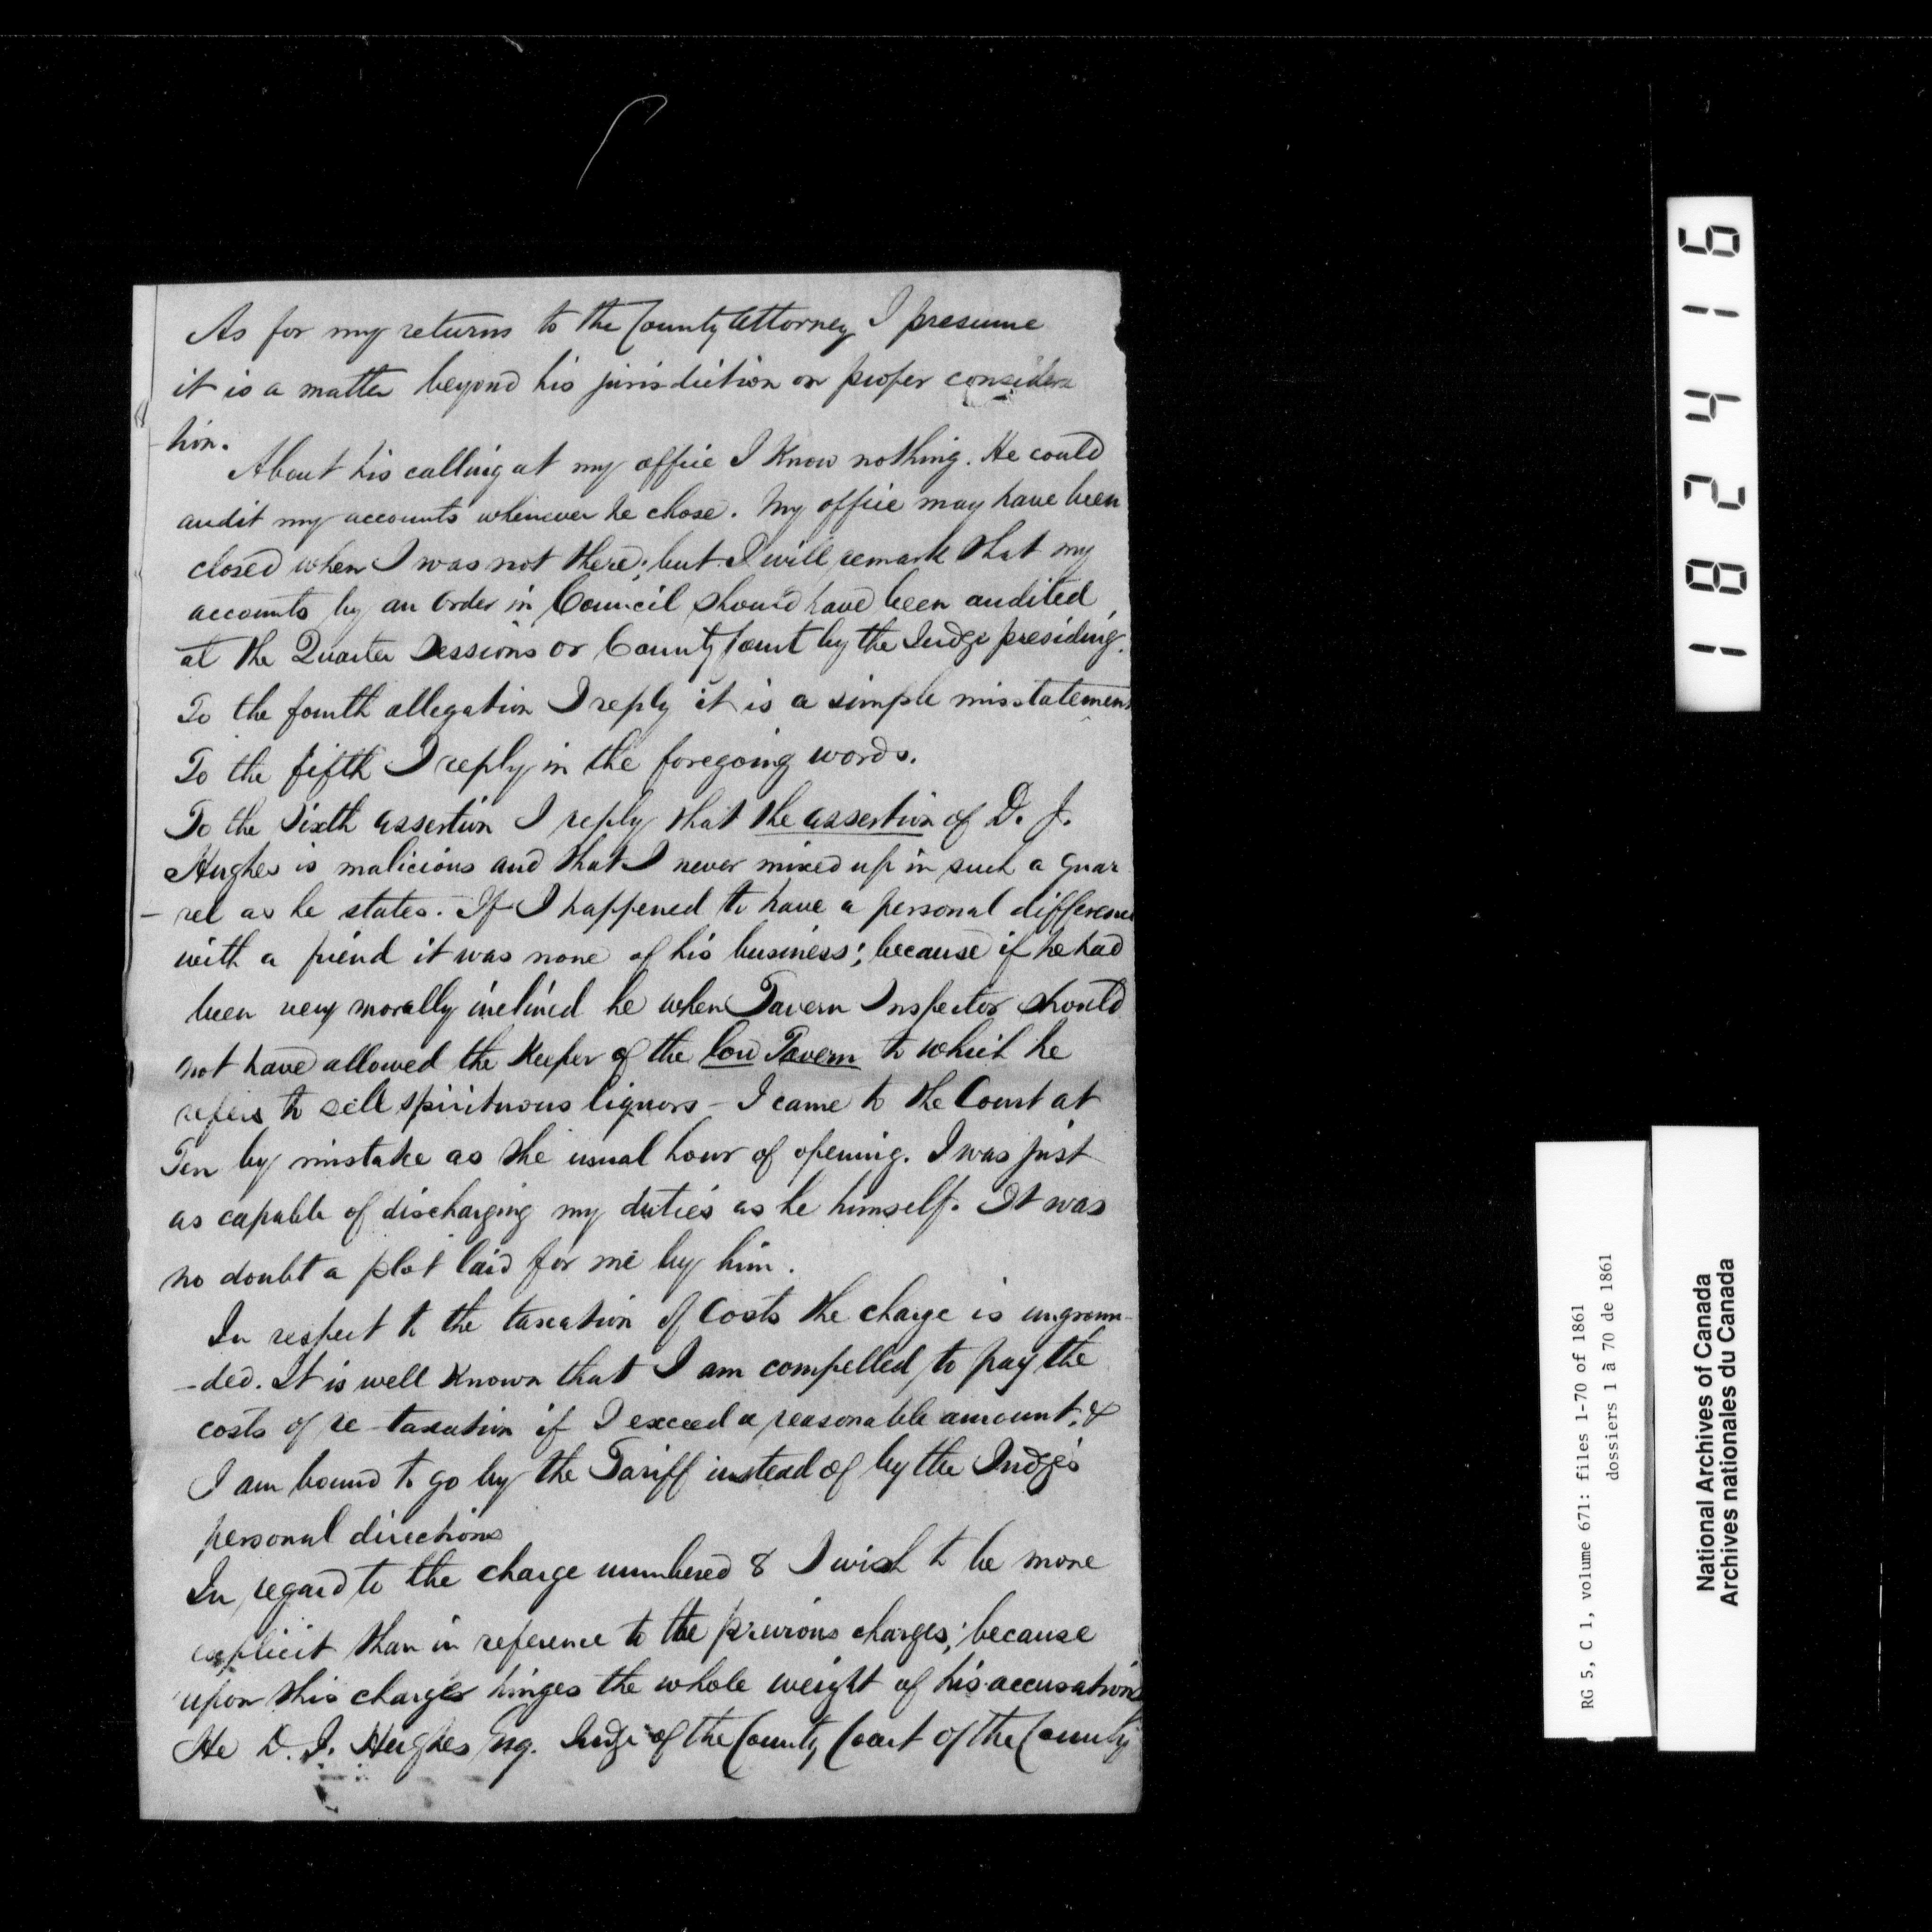 As for my returns to the County Attorney I presume
it is a matter beyond his jurisdiction or proper considera
-tion.
About his calling at my office I Know nothing. He could
audit my accounts whenever he chose. My office may have been
closed when I was not there; but I will remark that my
accounts by an Order in Council should have been audited
at the Quarter Sessions or County Court by the Judge presiding.
To the fourth allegation I reply it is a simple misstatement
To the fifth I reply in the foregoing words.
To the Sixth assertion I reply that the assertion of D. J.
Hughes is malicious and that I never mixed up in such a quar
-rel as he states. If I happened to have a personal difference
with a friend it was none of his business; because if he had
been very morally inclined he when Tavern Inspector should
not have allowed the Keeper of the low Tavern to which he
refers to sell spirituous liquors - I came to the Court at
Ten by mistake as the usual hour of opening. I was just
as capable of discharging my duties as he himself. It was
no doubt a plot laid for me by him.
In respect to the taxation of Costs the charge is ungroun-
-ded. It is well Known that I am compelled to pay the
costs of re-taxation if I exceed a reasonable amount, &
I am bound to go by the Tariff instead of by the Judge's
personal directions
In regard to the charge numbered 8 I wish to be more
explicit than in reference to the previous charges; because
upon this charge hinges the whole weight of his accusations
He D. J. Hughes Esq. Judge of the County Court of the County
182416
RG 5, C 1, volume 671: files 1-70 of 1861
dossiers 1 à 70 de 1861
National Archives of Canada
Archives nationales du Canada